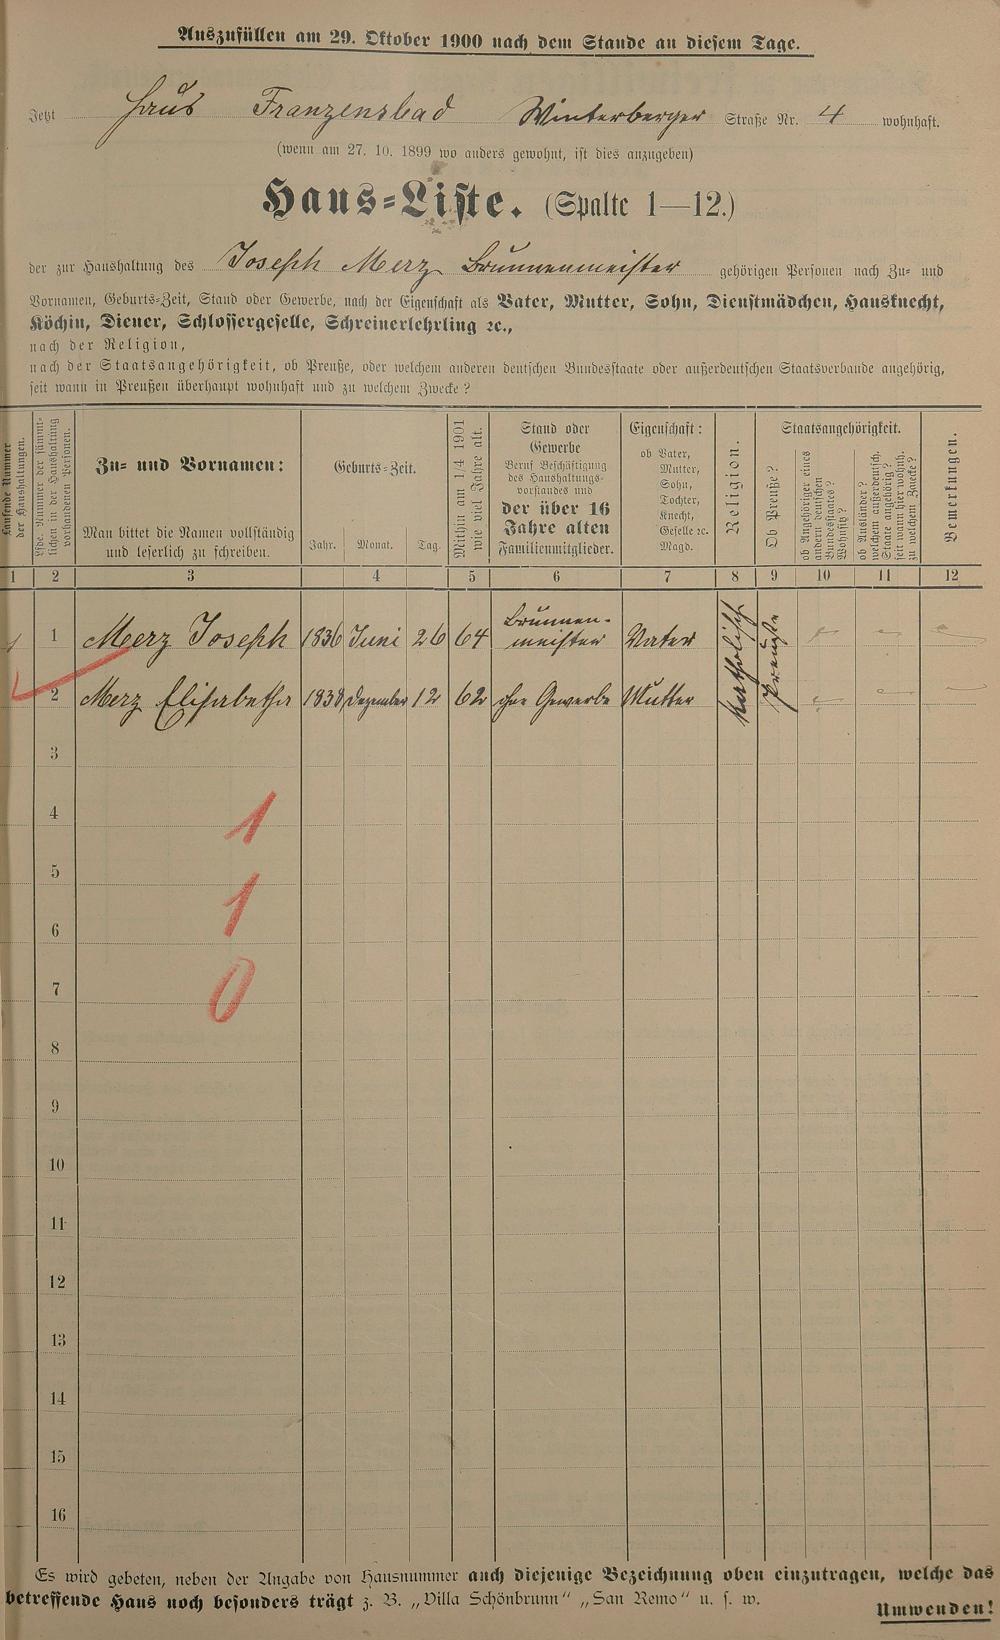 Auszufüllen am 29. Oktober 1900 nach dem Stande an diesem Tage.
Jetzt Haus Franzensbad Winterberger Straße Nr. 4 wohnhaft.
(wenn am 27. 10. 1899 wo anders gewohnt, ist dies anzugeben)
Haus-Liste. (Spalte 1—12.)
der zur Haushaltung des Joseph Merz Brunnenmeister gehörigen Personen nach Zu- und
Vornamen, Geburts-Zeit, Stand oder Gewerbe, nach der Eigenschaft als Vater, Mutter, Sohn, Dienstmädchen, Hausknecht,
Köchin, Diener, Schlossergeselle, Schreinerlehrling ꝛc.,
nach der Religion,
nach der Staatsangehörigkeit, ob Preuße, oder welchem anderen deutschen Bundesstaate oder außerdeutschen Staatsverbande angehörig,
seit wann in Preußen überhaupt wohnhaft und zu welchem Zwecke?
Laufende Nummer
der Haushaltungen.
Lfde. Nummer der sämmt-
lichen in der Haushaltung
vorhandenen Personen.
Zu- und Vornamen:
Man bittet die Namen vollständig
und leserlich zu schreiben.
Geburts-Zeit.
Jahr. Monat. Tag.
Mithin am 1/4 1901
wie viel Jahre alt.
Stand oder
Gewerbe
Beruf Beschäftigung
des Haushaltungs-
vorstandes und
der über 16
Jahre alten
Familienmitglieder.
Eigenschaft:
ob Vater,
Mutter,
Sohn,
Tochter,
Knecht,
Geselle ꝛc.
Magd.
Religion.
Staatsangehörigkeit.
Ob Preuße?
ob Angehöriger eines
andern deutschen
Bundesstaates?
Wohnsitz?
ob Ausländer?
welchem außerdeutsch.
Staate angehörig?
seit wann hier wohnh.
zu welchem Zwecke?
Bemerkungen.
1 2 3 4 5 6 7 8 9 10 11 12
1 1 Merz Joseph 1836 Juni 26 64 Brunnen-
meister Vater katholisch Preuße
2 Merz Elisabetha 1838 Dezember 12 62 ohne Gewerbe Mutter
3
4 1
5
6 1
7 0
8
9
10
11
12
13
14
15
16
Es wird gebeten, neben der Angabe von Hausnummer auch diejenige Bezeichnung oben einzutragen, welche das
betreffende Haus noch besonders trägt z. B. „Villa Schönbrunn“ „San Remo“ u. s. w.
Umwenden!